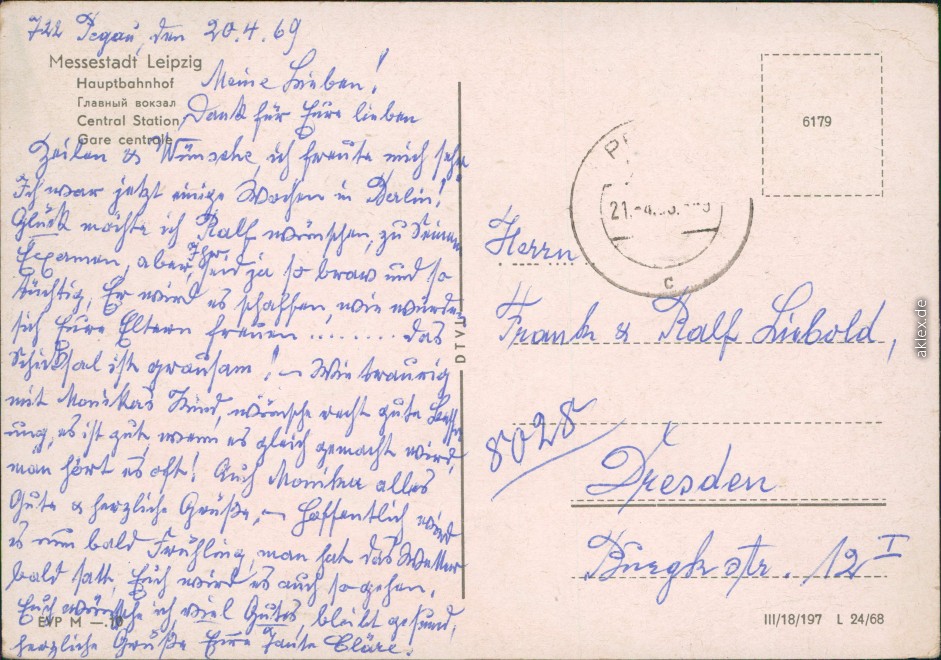 722 Pegau, den 20.4.69
Messestadt Leipzig
Hauptbahnhof
Главный вокзал
Central Station
Gare centrale
Meine Lieben!
Dank für Eure lieben
Zeilen & Wünsche, ich freute mich sehr
Ich war jetzt einige Wochen in Berlin!
Glück möchte ich Ralf wünschen, zu seinem
Examen, aber Ihr seid ja so brav und so
tüchtig, Er wird es schaffen, wie würden
sich Eure Eltern freuen ........ das
Schicksal ist grausam! – Wie traurig
mit Monikas Kind, wünsche recht gute Besser
ung, es ist gut, wenn es gleich gemacht wird,
man hört es oft! Auch Monika alles
Gute & herzliche Grüße, – Hoffentlich wird
es nun bald Frühling, man hat das Wetter
bald satt, Euch wird es auch so gehen.
Euch wünsche ich viel Gutes bleibt gesund,
herzliche Grüße Eure Tante Cläre.
EVP M —.10
DTVT
6179
21.-4.
c
Herrn
Frank & Ralf Liebold,
8028
Dresden
Burgkstr. 12 I
III/18/197 L 24/68
aklex.de